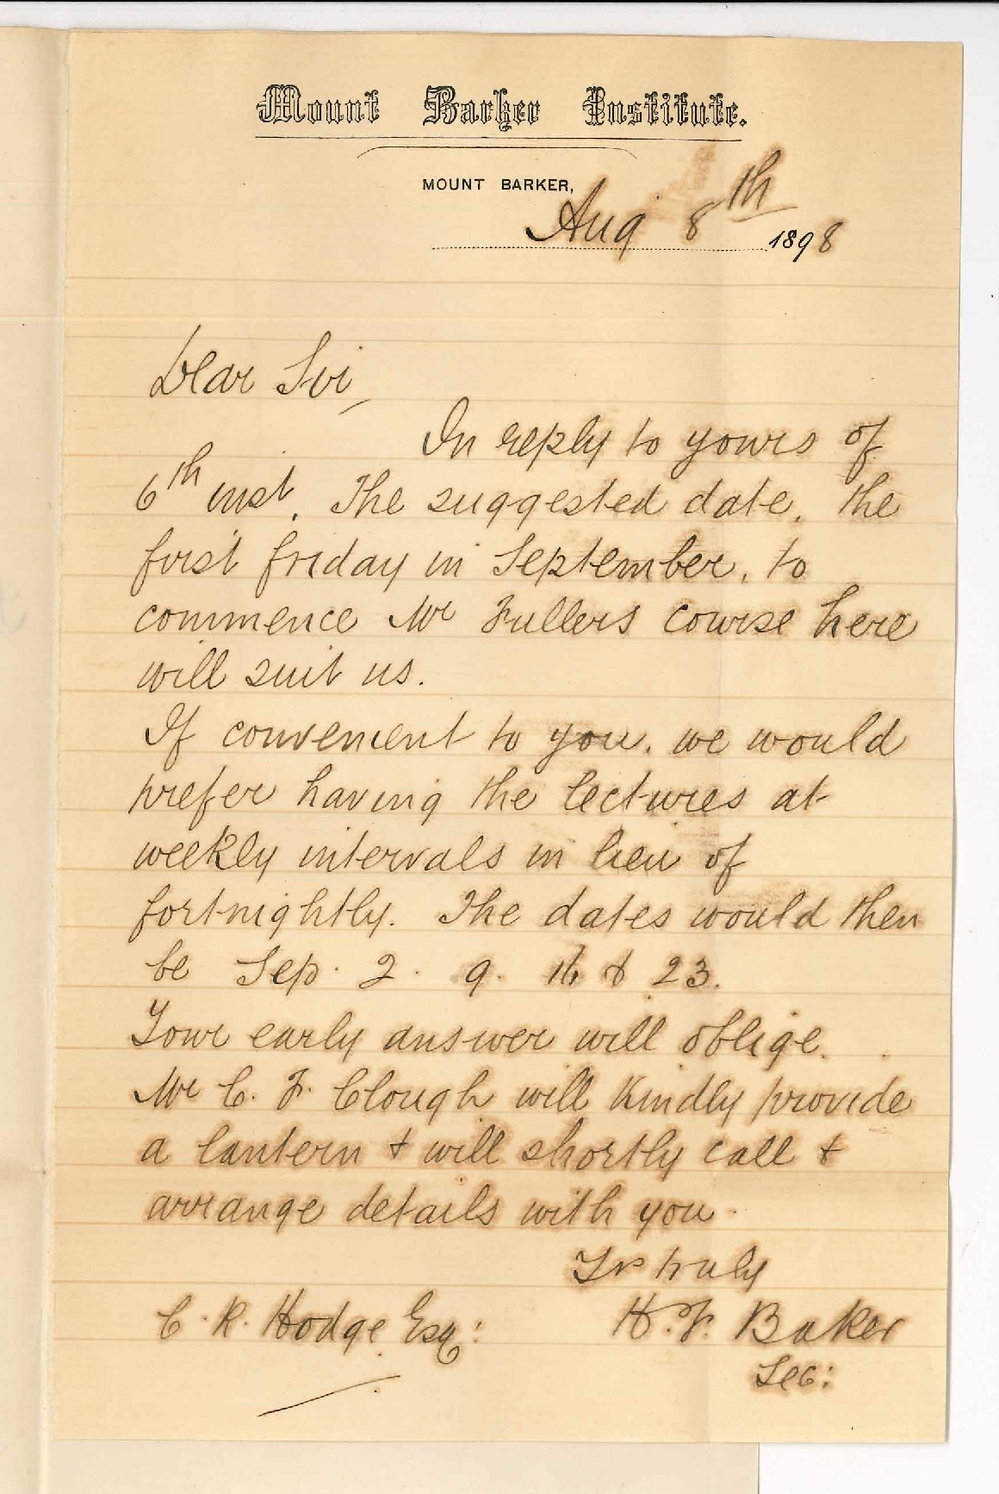 Mount Barker Institute.
MOUNT BARKER,
Aug 8th 1898
Dear Sir,
In reply to yours of
6th inst. The suggested date, the
first friday in September, to
commence Mr Fullers course here
will suit us.
If convenient to you, we would
prefer having the lectures at
weekly intervals in lieu of
fortnightly. The dates would then
be Sep. 2. 9. 16 & 23.
Your early answer will oblige.
Mr C. F. Clough will kindly provide
a lantern & will shortly call &
arrange details with you.
Yrs truly
C. R. Hodge Esq: H. F. Baker
Sec: